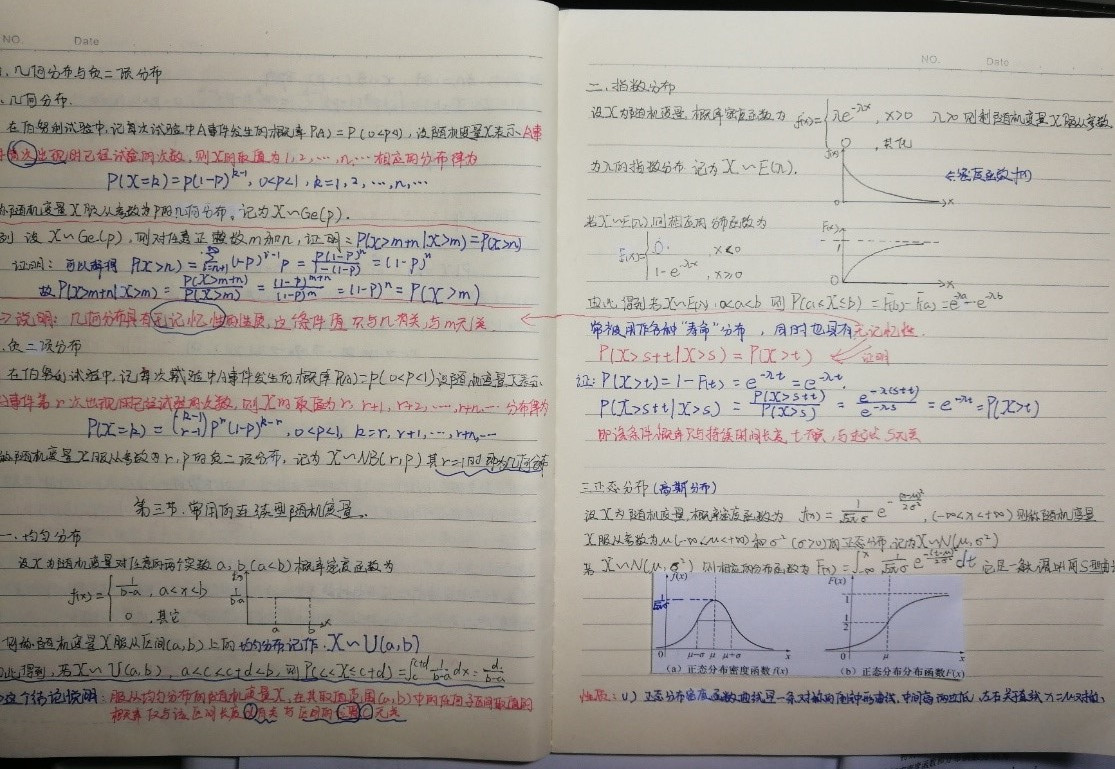 NO. Date
、几何分布与负二项分布
、几何分布.
在伯努利试验中,记每次试验中A事件发生的概率P(A)=P(0<p<1),设随机变量X表示A事
次出现时已经试验的次数,则X的取值为1,2,…,n,…相应的分布律为
P(X=k)=p(1-p)^{k-1}, 0<p<1, k=1,2,…,n,…
随机变量X服从参数为P的几何分布,记为X~Ge(p).
设X~Ge(p),则对任意正整数m和n,证明:P(X>m+n|X>m)=P(X>n)
证明:可以解得 P(X>n)=∑_{i=n+1}^{∞}(1-p)^{i-1}p=\frac{p(1-p)^n}{1-(1-p)}=(1-p)^n
故P(X>m+n|X>m)=\frac{P(X>m+n)}{P(X>m)}=\frac{(1-p)^{m+n}}{(1-p)^m}=(1-p)^n=P(X>m)
说明:几何分布具有无记忆性的性质,这条件值只与n有关,与m无关.
、负二项分布
在伯努利试验中,记每次试验中A事件发生的概率P(A)=p(0<p<1)设随机变量X表示
事件第r次出现时已经试验的次数,则X的取值为r,r+1,r+2,…,r+n,…分布律为
P(X=k)=\binom{k-1}{r-1}p^r(1-p)^{k-r}, 0<p<1, k=r,r+1,…,r+n,…
随机变量X服从参数为r,p的负二项分布,记为X~NB(r,p)其r=1时即为几何分布
第三节.常用的连续型随机变量.
一.均匀分布
设X为随机变量对任意的两个实数a,b(a<b)概率密度函数为
f(x)={\frac{1}{b-a}, a<x<b
0,其它
\frac{1}{b-a} 0 a b x
则称随机变量X服从区间(a,b)上的均匀分布记作.X~U(a,b)
此得到,若X~U(a,b),a<c<c+d<b,则P(c<X<c+d)=∫_c^{c+d}\frac{1}{b-a}dx=\frac{d}{b-a}
这个结论说明:服从均匀分布的随机变量X,在其取值范围(a,b)中的任何子区间取值的
概率仅与该区间长度有关与区间的位置无关
NO. Date
二.指数分布
设X为随机变量,概率密度函数为 f(x)={λe^{-λx}, x>0 λ>0 则称随机变量X服从参数
0,其他
为λ的指数分布 记为X~E(λ).
f(x) 0 x
密度函数f(x)
若X~E(λ),则相应的分布函数为
F(x)={0, x≤0
1-e^{-λx}, x>0
F(x) 1 0 x
由此得到若X~E(λ),a<a<b 则 P(a<X<b)=F(b)-F(a)=e^{-λa}-e^{-λb}
常被用作各种"寿命"分布,同时也具有无记忆性.
P(X>s+t|X>s)=P(X>t) 证明
证:P(X>t)=1-F(t)=e^{-λt}=e^{-λt}.
P(X>s+t|X>s)=\frac{P(X>s+t)}{P(X>s)}=\frac{e^{-λ(s+t)}}{e^{-λs}}=e^{-λt}=P(X>t)
即该条件概率只与持续时间长度t有关,与起点S无关
三正态分布(高斯分布)
设X为随机变量,概率密度函数为 f(x)=\frac{1}{\sqrt{2π}σ}e^{-\frac{(x-μ)^2}{2σ^2}},(-∞<x<+∞)则称随机变量
X服从参数为μ(-∞<μ<+∞)和σ^2(σ>0)的正态分布,记为X~N(μ,σ^2)
若X~N(μ,σ^2)则相应的分布函数为F(x)=∫_{-∞}^{x}\frac{1}{\sqrt{2π}σ}e^{-\frac{(t-μ)^2}{2σ^2}}dt 它是一条
f(x) \frac{1}{\sqrt{2π}σ} 0 μ-σ μ μ+σ x
F(x) 1 \frac{1}{2} 0 μ x
(a)正态分布密度函数f(x) (b)正态分布分布函数F(x)
性质:(1)正态分布密度函数曲线是一条对称的倒钟形曲线,中间高两边低,左右关于直线x=μ对称,